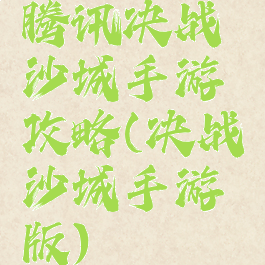 腾讯决战
沙城手游
攻略(决战
沙城手游
版)